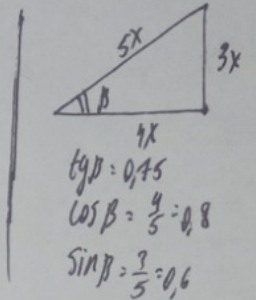 5x
3x
β
4x
tgβ = 0,75
cosβ = 4/5 = 0,8
sinβ = 3/5 = 0,6